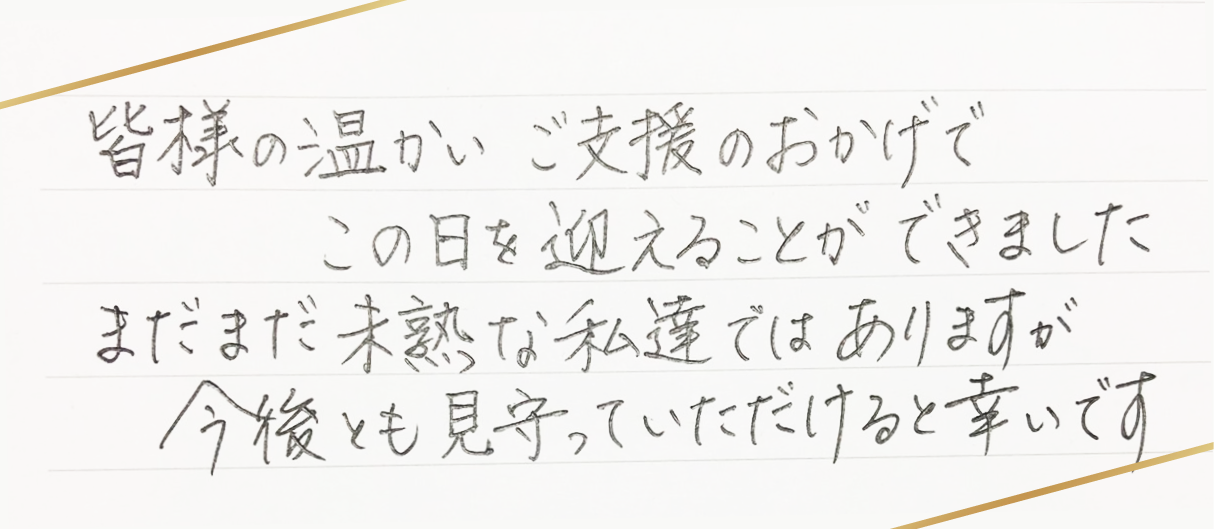 皆様の温かいご支援のおかげで
この日を迎えることができました
まだまだ未熟な私達ではありますが
今後とも見守っていただけると幸いです